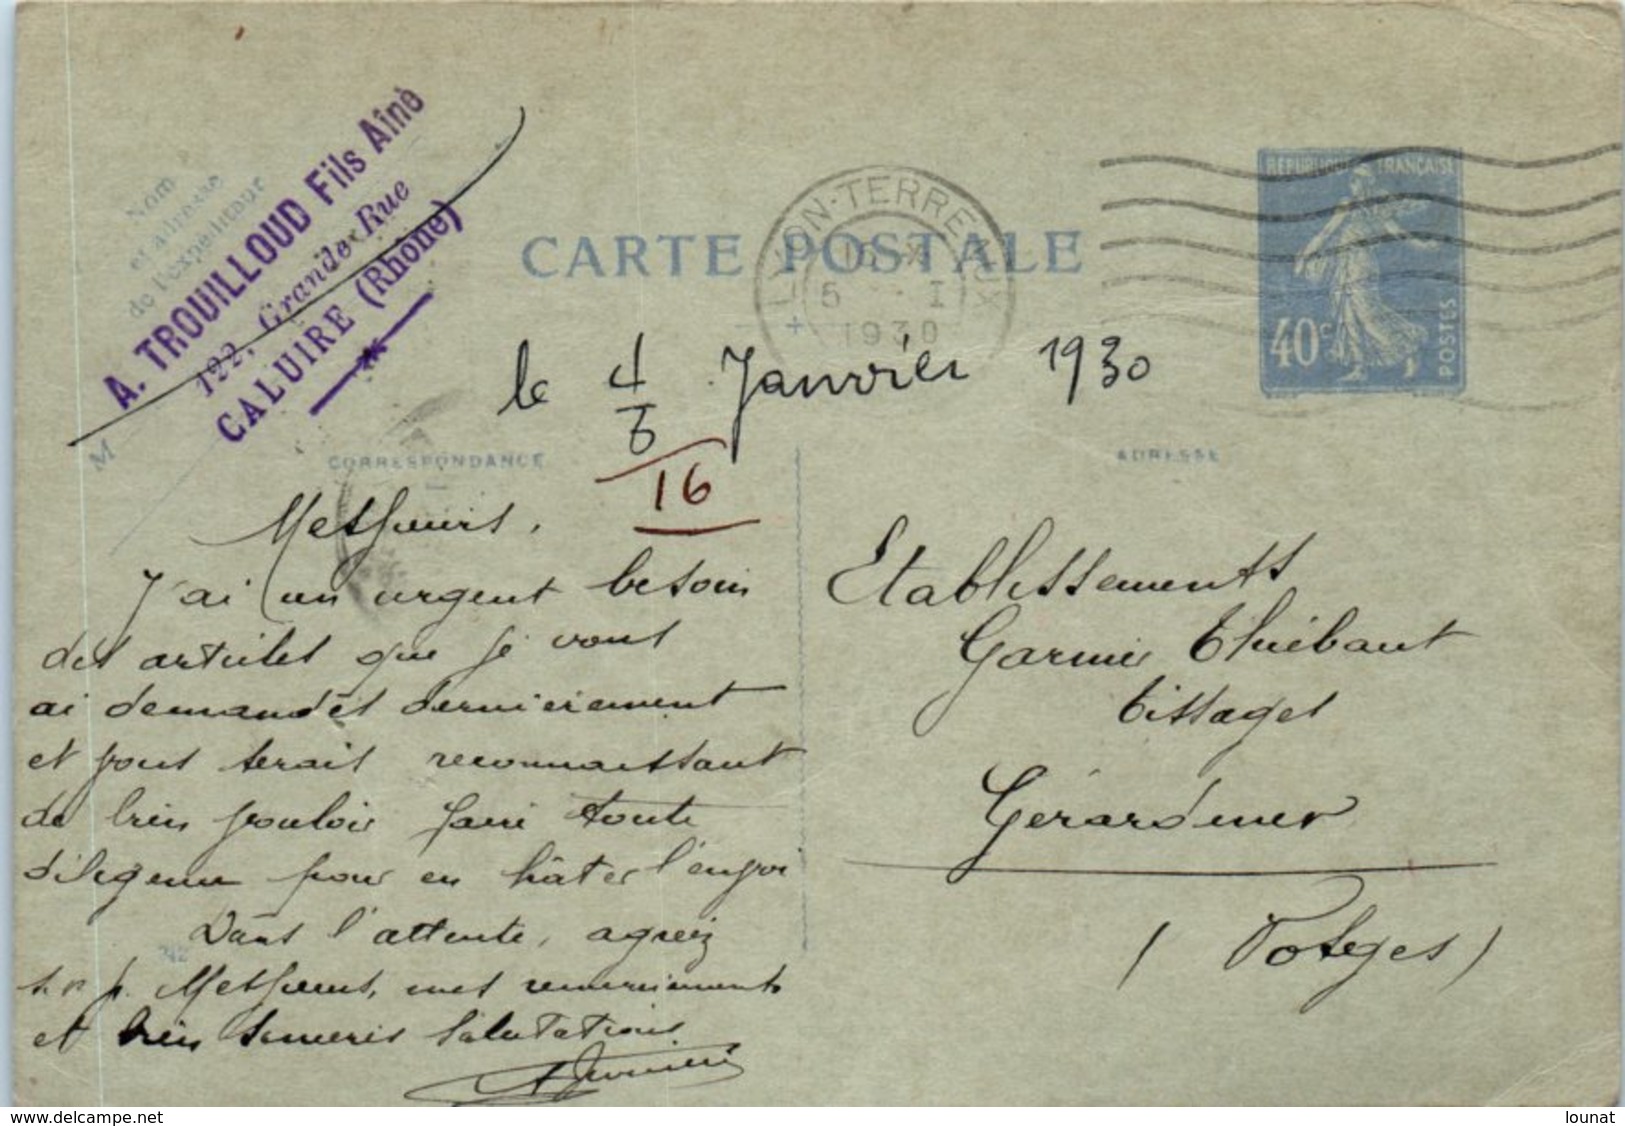 Nom
et adresse
de l'expéditeur
A. TROUILLOUD Fils Aîné
122, Grande Rue
CALUIRE (Rhône)
M
LYON-TERREAUX
5 I
1930
CARTE POSTALE
RÉPUBLIQUE FRANÇAISE
40c
POSTES
le 4/6 Janvier 1930
16
CORRESPONDANCE
ADRESSE
Messieurs,
J'ai un urgent besoin
des articles que je vous
ai demandés dernièrement
et vous serais reconnaissant
de bien vouloir faire toute
diligence pour en hâter l'envoi
Dans l'attente, agréez
s. v. p. Messieurs, mes remerciements
et bien sincères salutations
Etablissements
Garnier Thiébaut
Tissages
Gérardmer
(Vosges)
delcampe.net
lounat